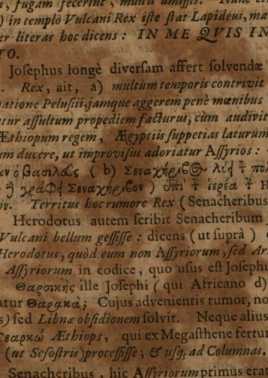 , fugam fecerint, multi amissi.
) in templo Vulcani Rex iste stat Lapideus, ma
er literas hoc dicens: IN ME QVIS IN
TO.
Josephus longè diversam affert solvendæ
Rex, ait, a) multum temporis contrivit
natione Pelusii, jamque aggerem penè mœnibus
tur assultum propediem facturus, cùm audivit
Æthiopum regem, Ægyptiis suppetias laturum
um ducere, ut improvisus adoriatur Assyrios:
βασιλεὺς (b) Σεναχήριβος
Σεναχήριβον)
iv. Territus hoc rumore Rex (Senacheribus
Herodotus autem scribit Senacheribum
Vulcani bellum gessisse: dicens (ut suprà)
Herodotus, quòd eum non Assyriorum, sed Ar
Assyriorum in codice, quo usus est Josephu
Θαρσικὴς ille Josephi (qui Africano d)
atur Θαρακά; Cujus advenientis rumor, no
s) sed Libnæ obsidionem solvit. Neque alius
εαρκω Æthiops, qui ex Megasthene fertur
(ut Sesostris) processisse, & usq; ad Columnas.
Senacheribus, hic Assyriorum primus erat